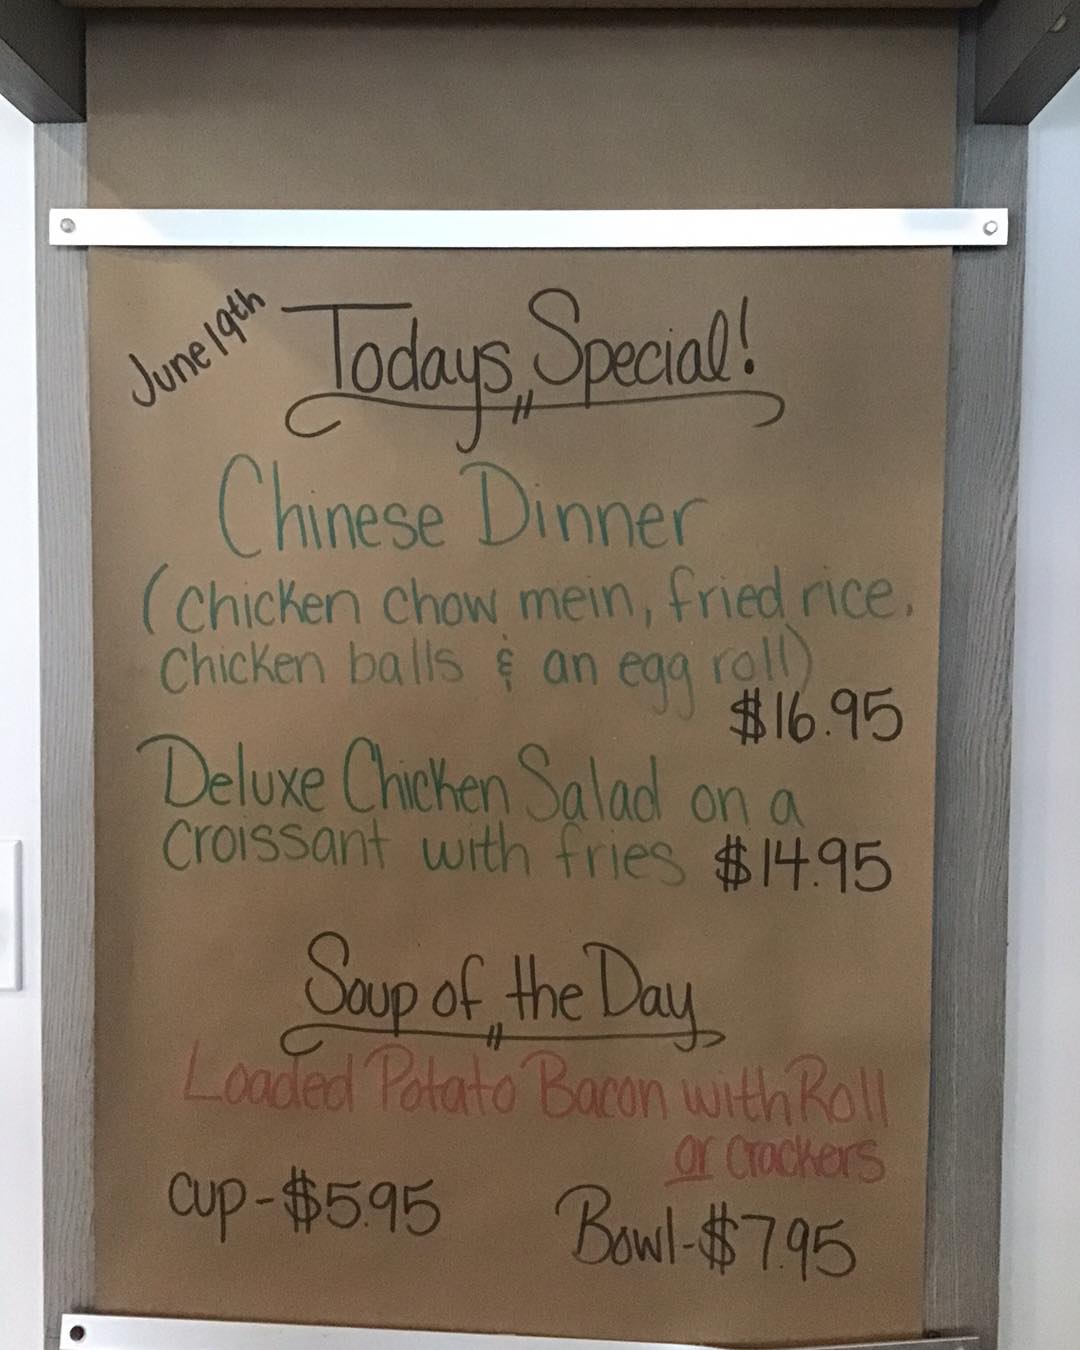 June 19th
Todays Special!
Chinese Dinner
(chicken chow mein, fried rice,
chicken balls & an egg roll)
$16.95
Deluxe Chicken Salad on a
croissant with fries $14.95
Soup of the Day
Loaded Potato Bacon with Roll
or crackers
cup-$5.95
Bowl-$7.95